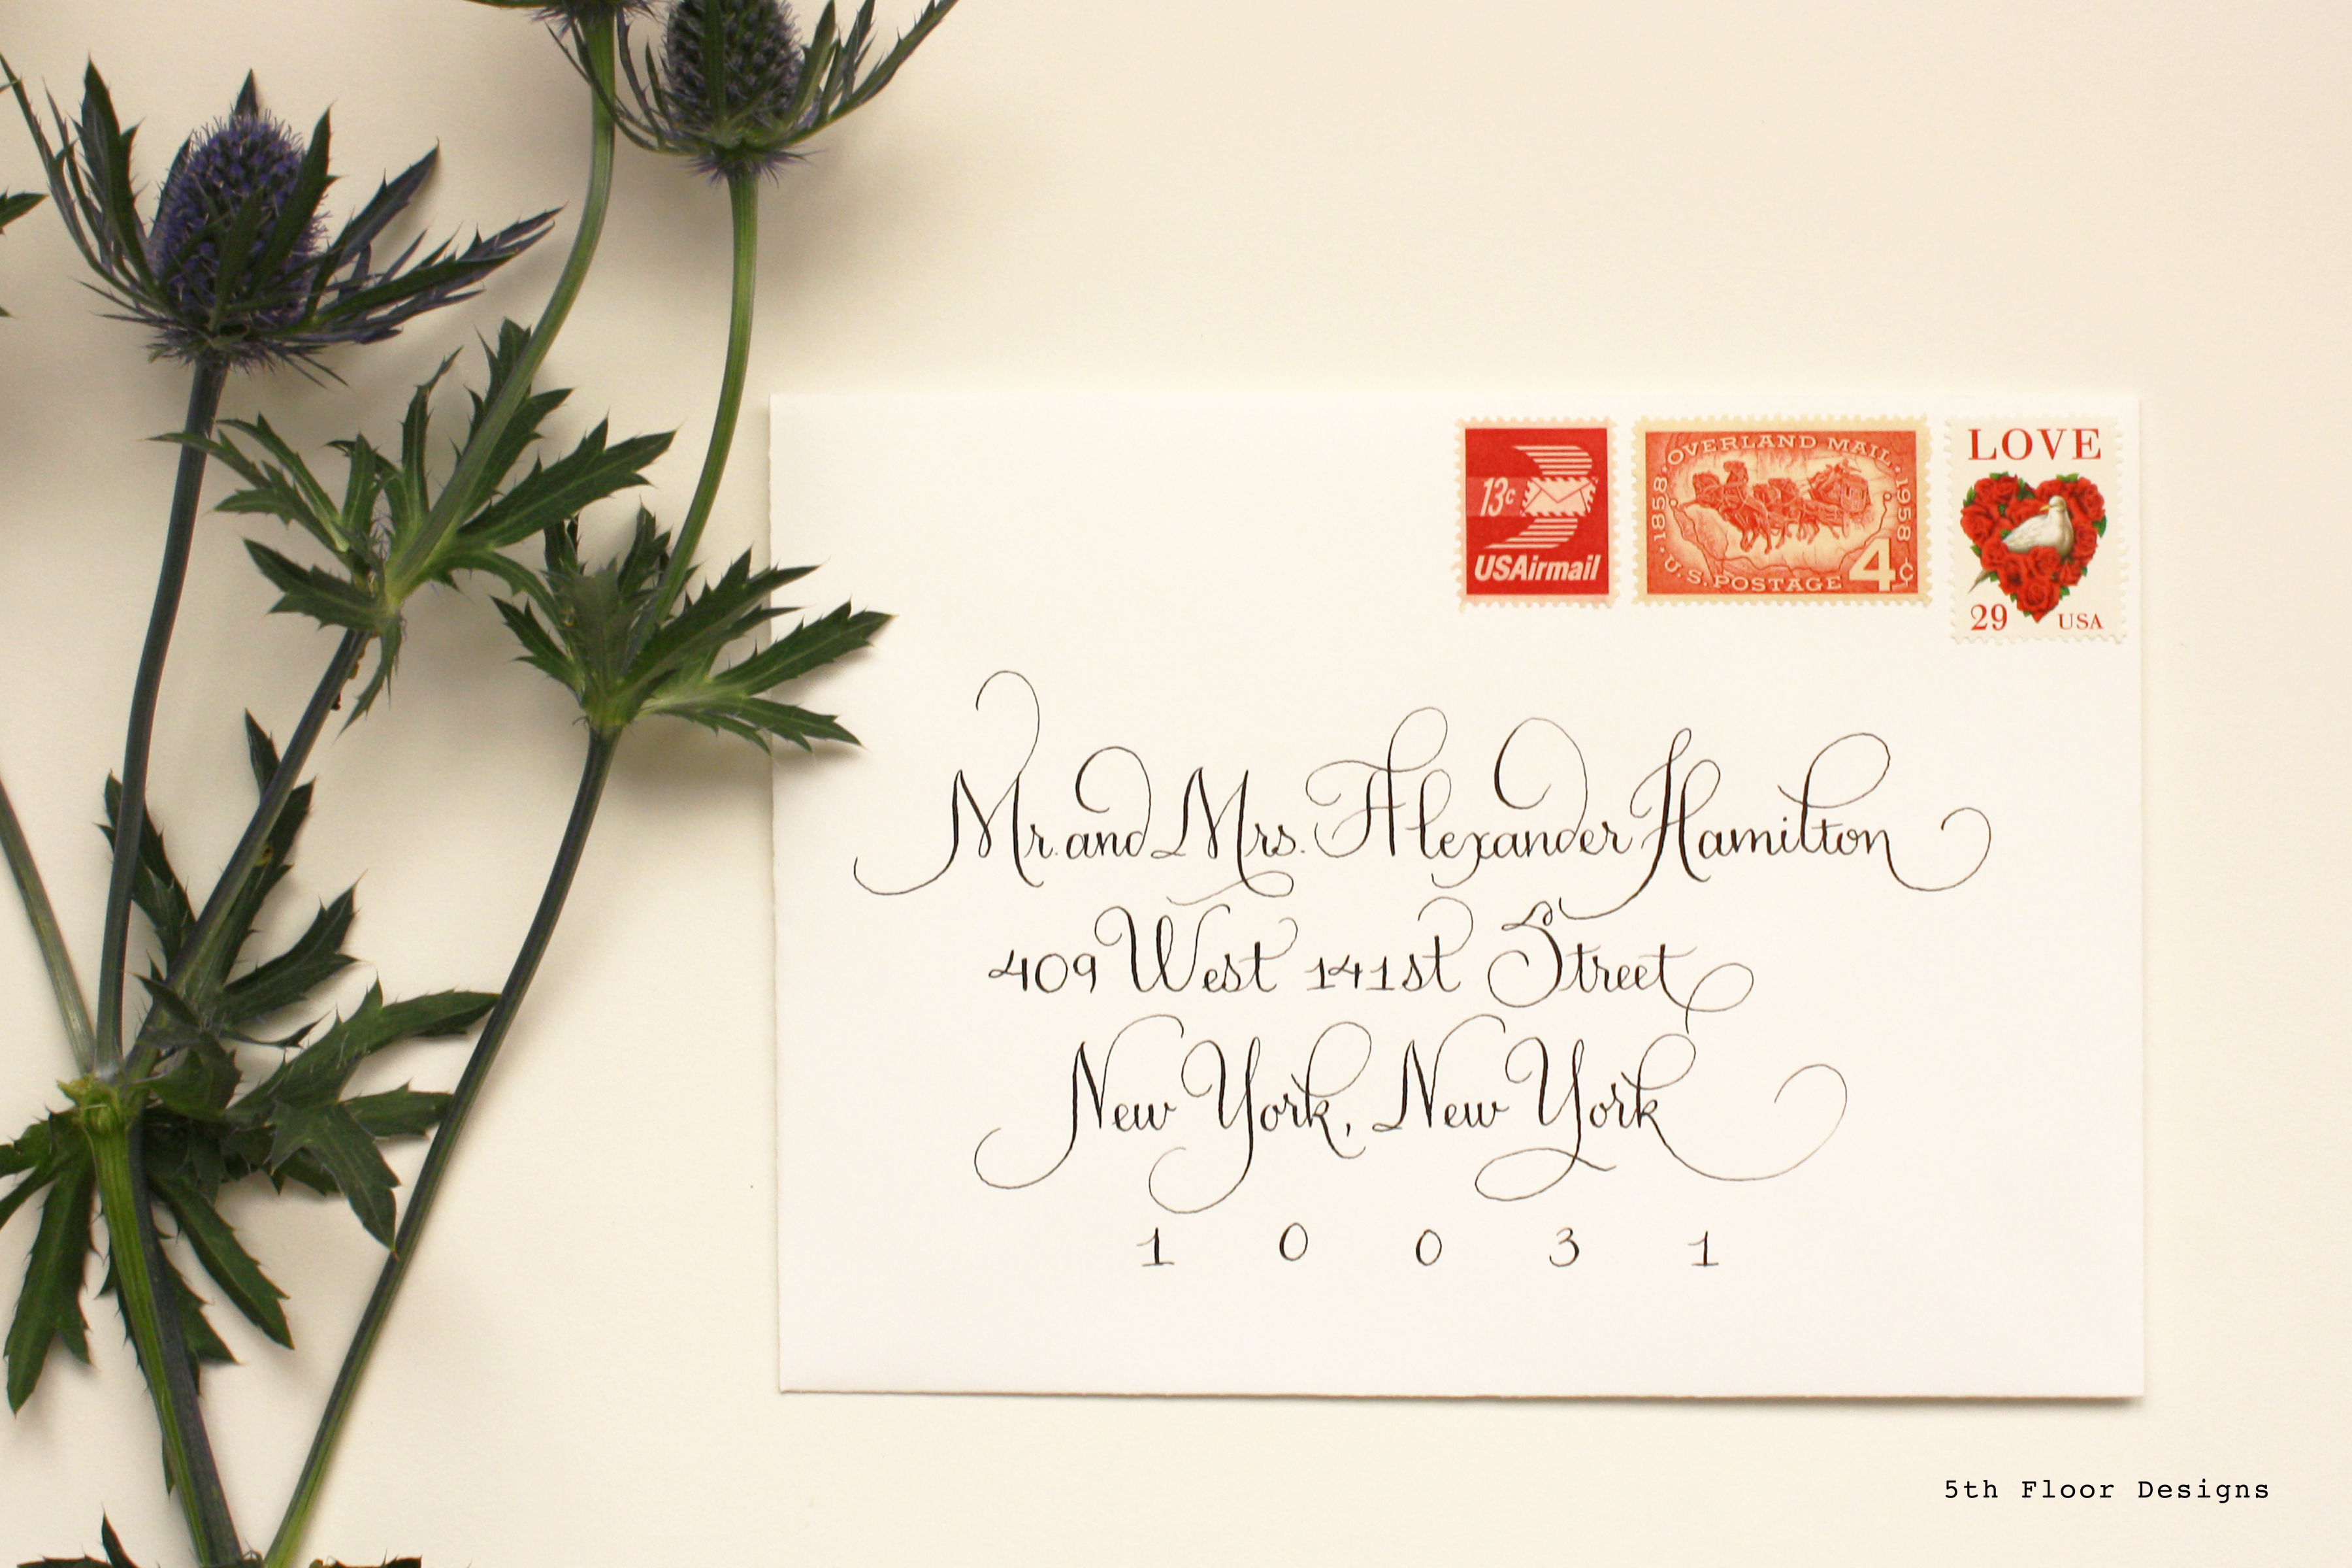 LOVE
OVERLAND MAIL
1858
1958
13c
USAirmail
U.S. POSTAGE
4¢
29 USA
Mr. and Mrs. Alexander Hamilton
409 West 141st Street
New York, New York
1 0 0 3 1
5th Floor Designs